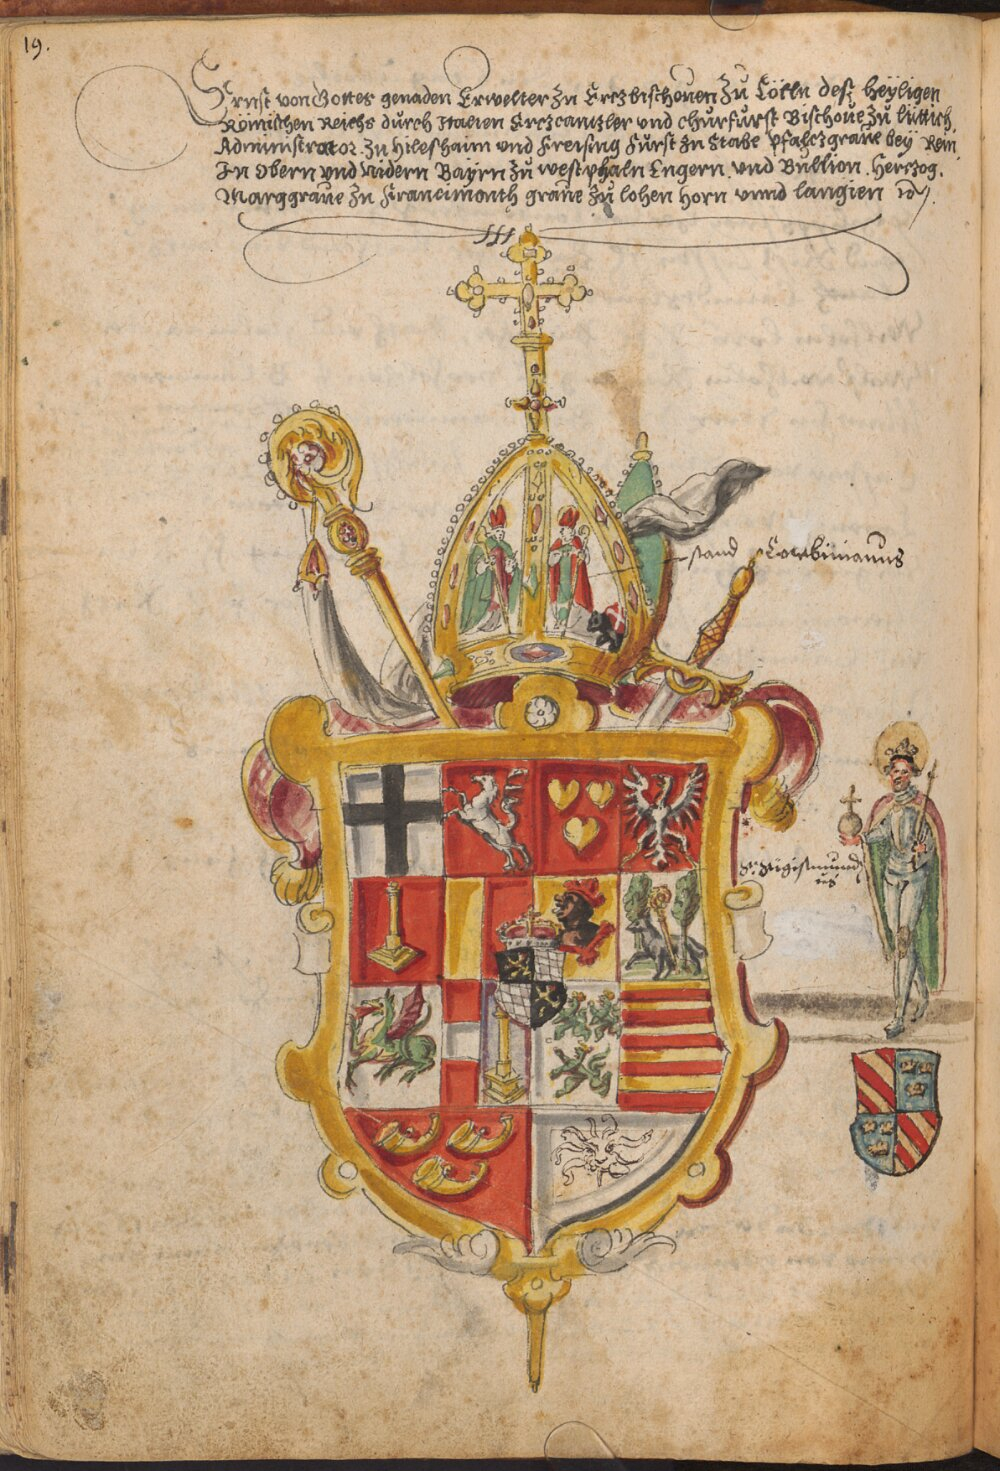 19.
Ernst von Gottes genaden Erwelter zu Erczbischouen zu Cölln deß heyligen
Römischen Reichs durch Italien Erczcantzler vnd churfürst Bischoue zu lüttich,
Administrator zu Hildeshaim vnd Freising Fürst zu Stabl pfalczgraue bey Rein,
In Obern vnd Nidern Bayrn zu westphaln Engern vnd Bullion. Herczog,
Marggraue zu Francimonth graue zu lohen horn vnnd
Corbinianus
S. Sigismund
us